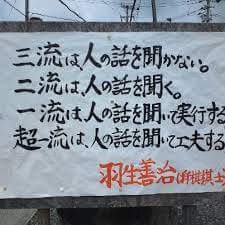 三流は、人の話を聞かない。
二流は、人の話を聞く。
一流は、人の話を聞いて実行する
超一流は、人の話を聞いて工夫する
羽生善治(将棋棋士